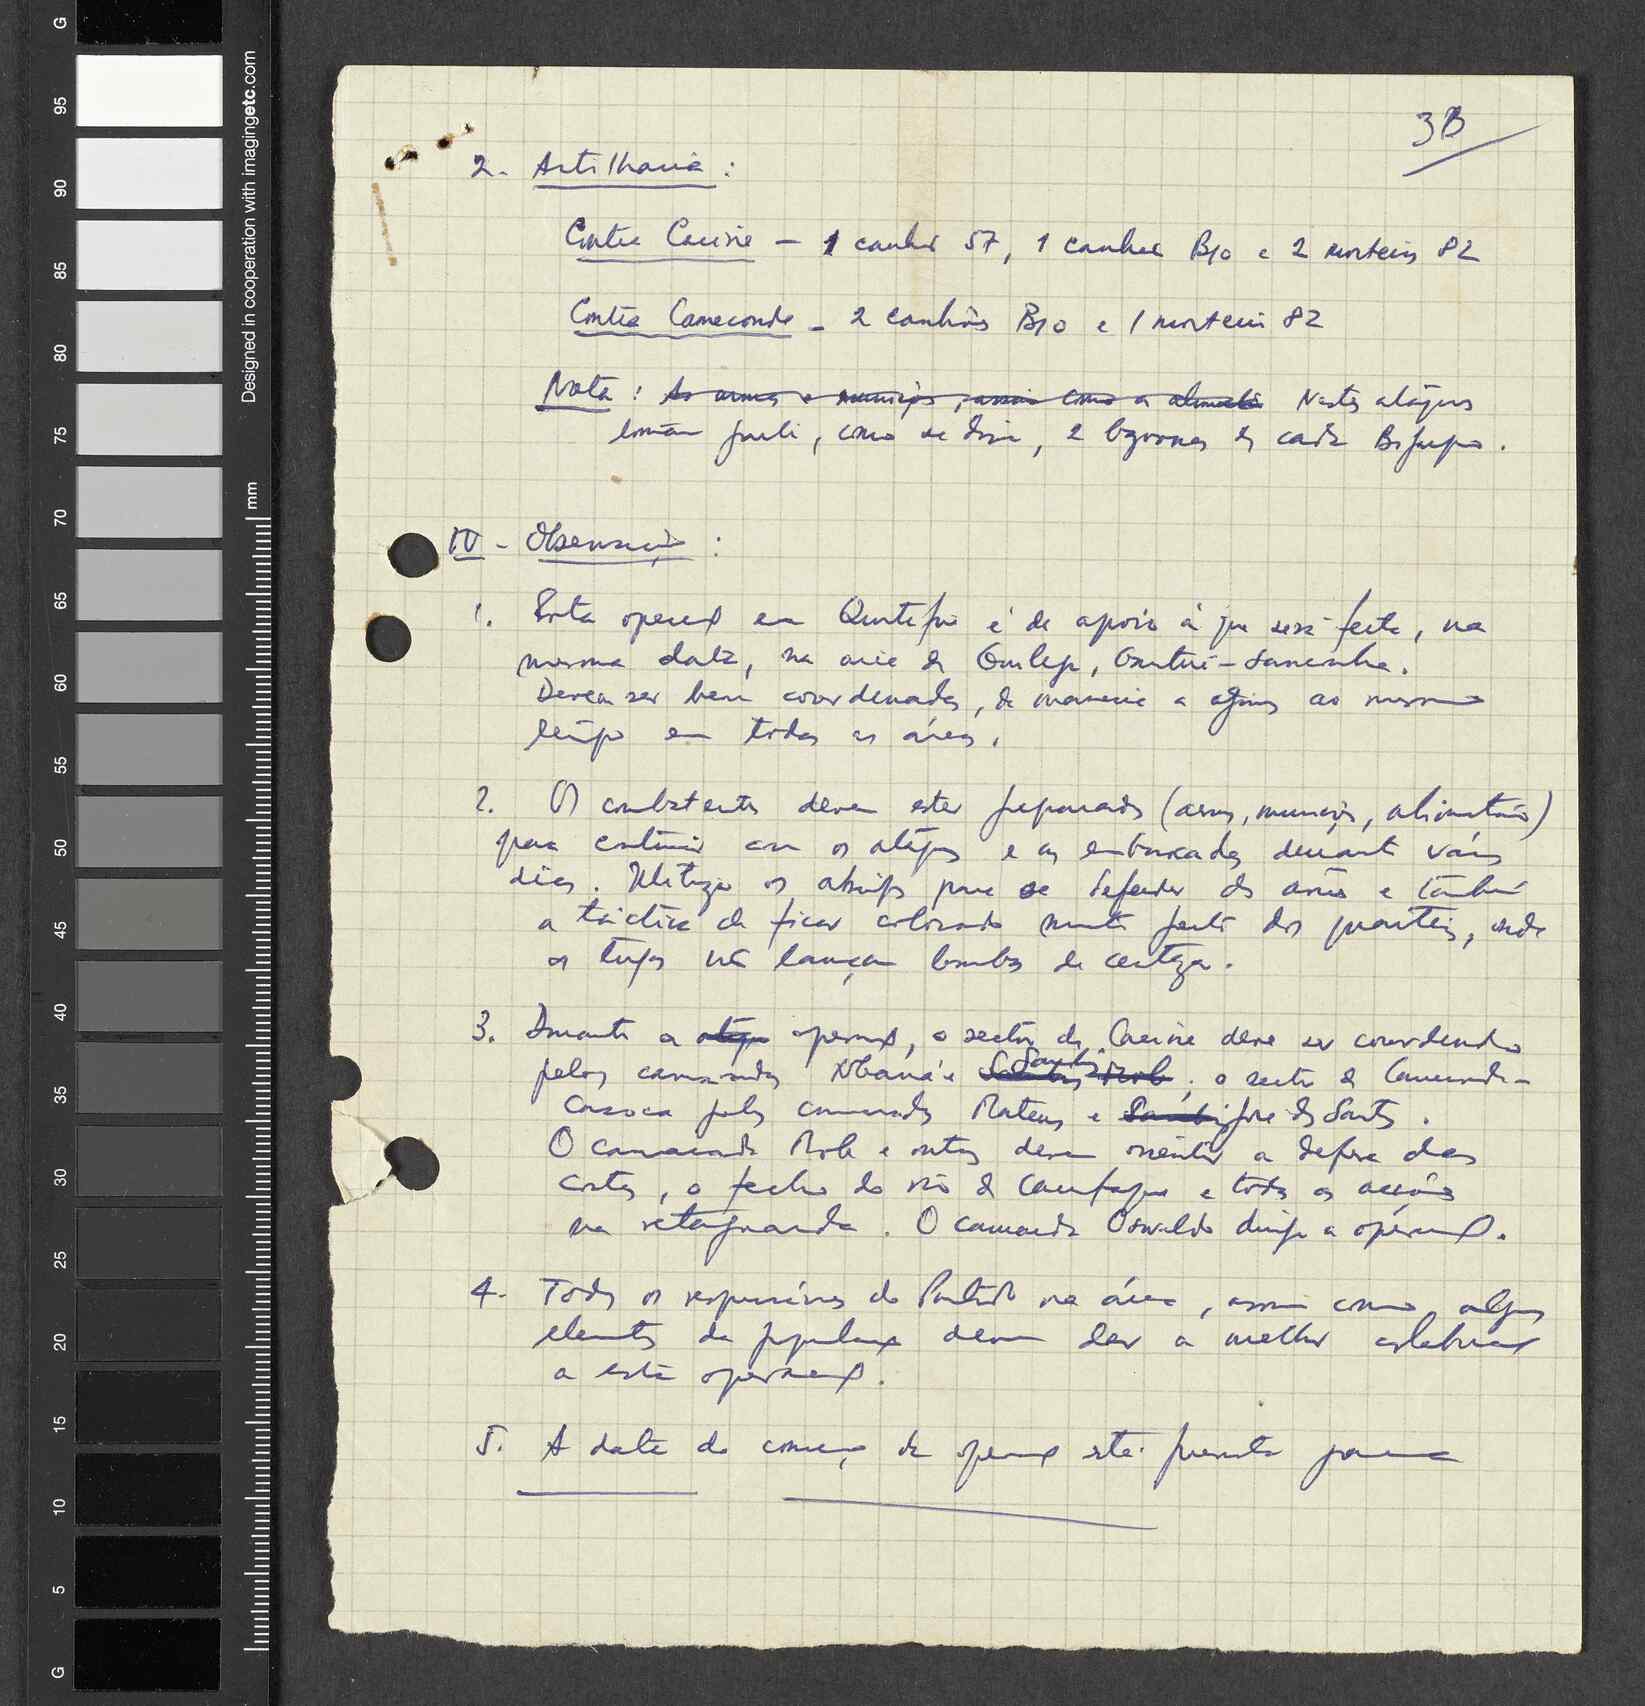 3B
2. Artilharia :
Contra Cacine — 1 canhão 57, 1 canhão B10 e 2 morteiros 82
Contra Cameconde — 2 canhões B10 e 1 morteiro 82
Nota : As armas e munições, assim como a Nestes ataques
tomam parte, como se disse, 2 bazookas de cada Bigrupo.
IV - Observação :
1. Esta operação em Quitafine é de apoio à que será feita, na
mesma data, na área de Guileje, Gantturé-Sansancutá.
Devem ser bem coordenadas, de maneira a agirmos ao mesmo
tempo em todas as áreas.
2. Os combatentes devem estar preparados (armas, munições, alimentação)
para continuar com os ataques e as emboscadas durante vários
dias. Utilizar os abrigos para se defender dos aviões e também
a táctica de ficar colocado muito perto dos quartéis, onde
os tugas não lançam bombas de certeza.
3. Durante a ataque operação, o sector de Cacine deve ser coordenado
pelos camaradas e ; o sector de Cameconde-
Cassaca pelos camaradas Mateus e José dos Santos.
O camarada e outros devem orientar a defesa das
costas, o fecho do rio de e todas as acções
na retaguarda. O camarada Oswaldo dirige a operação.
4. Todos os responsáveis do Partido na área, assim como alguns
elementos da população devem dar a melhor colaboração
a esta operação.
5. A data do começo da operação está prevista para
Designed in cooperation with imagingetc.com
mm
G
95
90
85
80
75
70
65
60
55
50
45
40
35
30
25
20
15
10
5
G